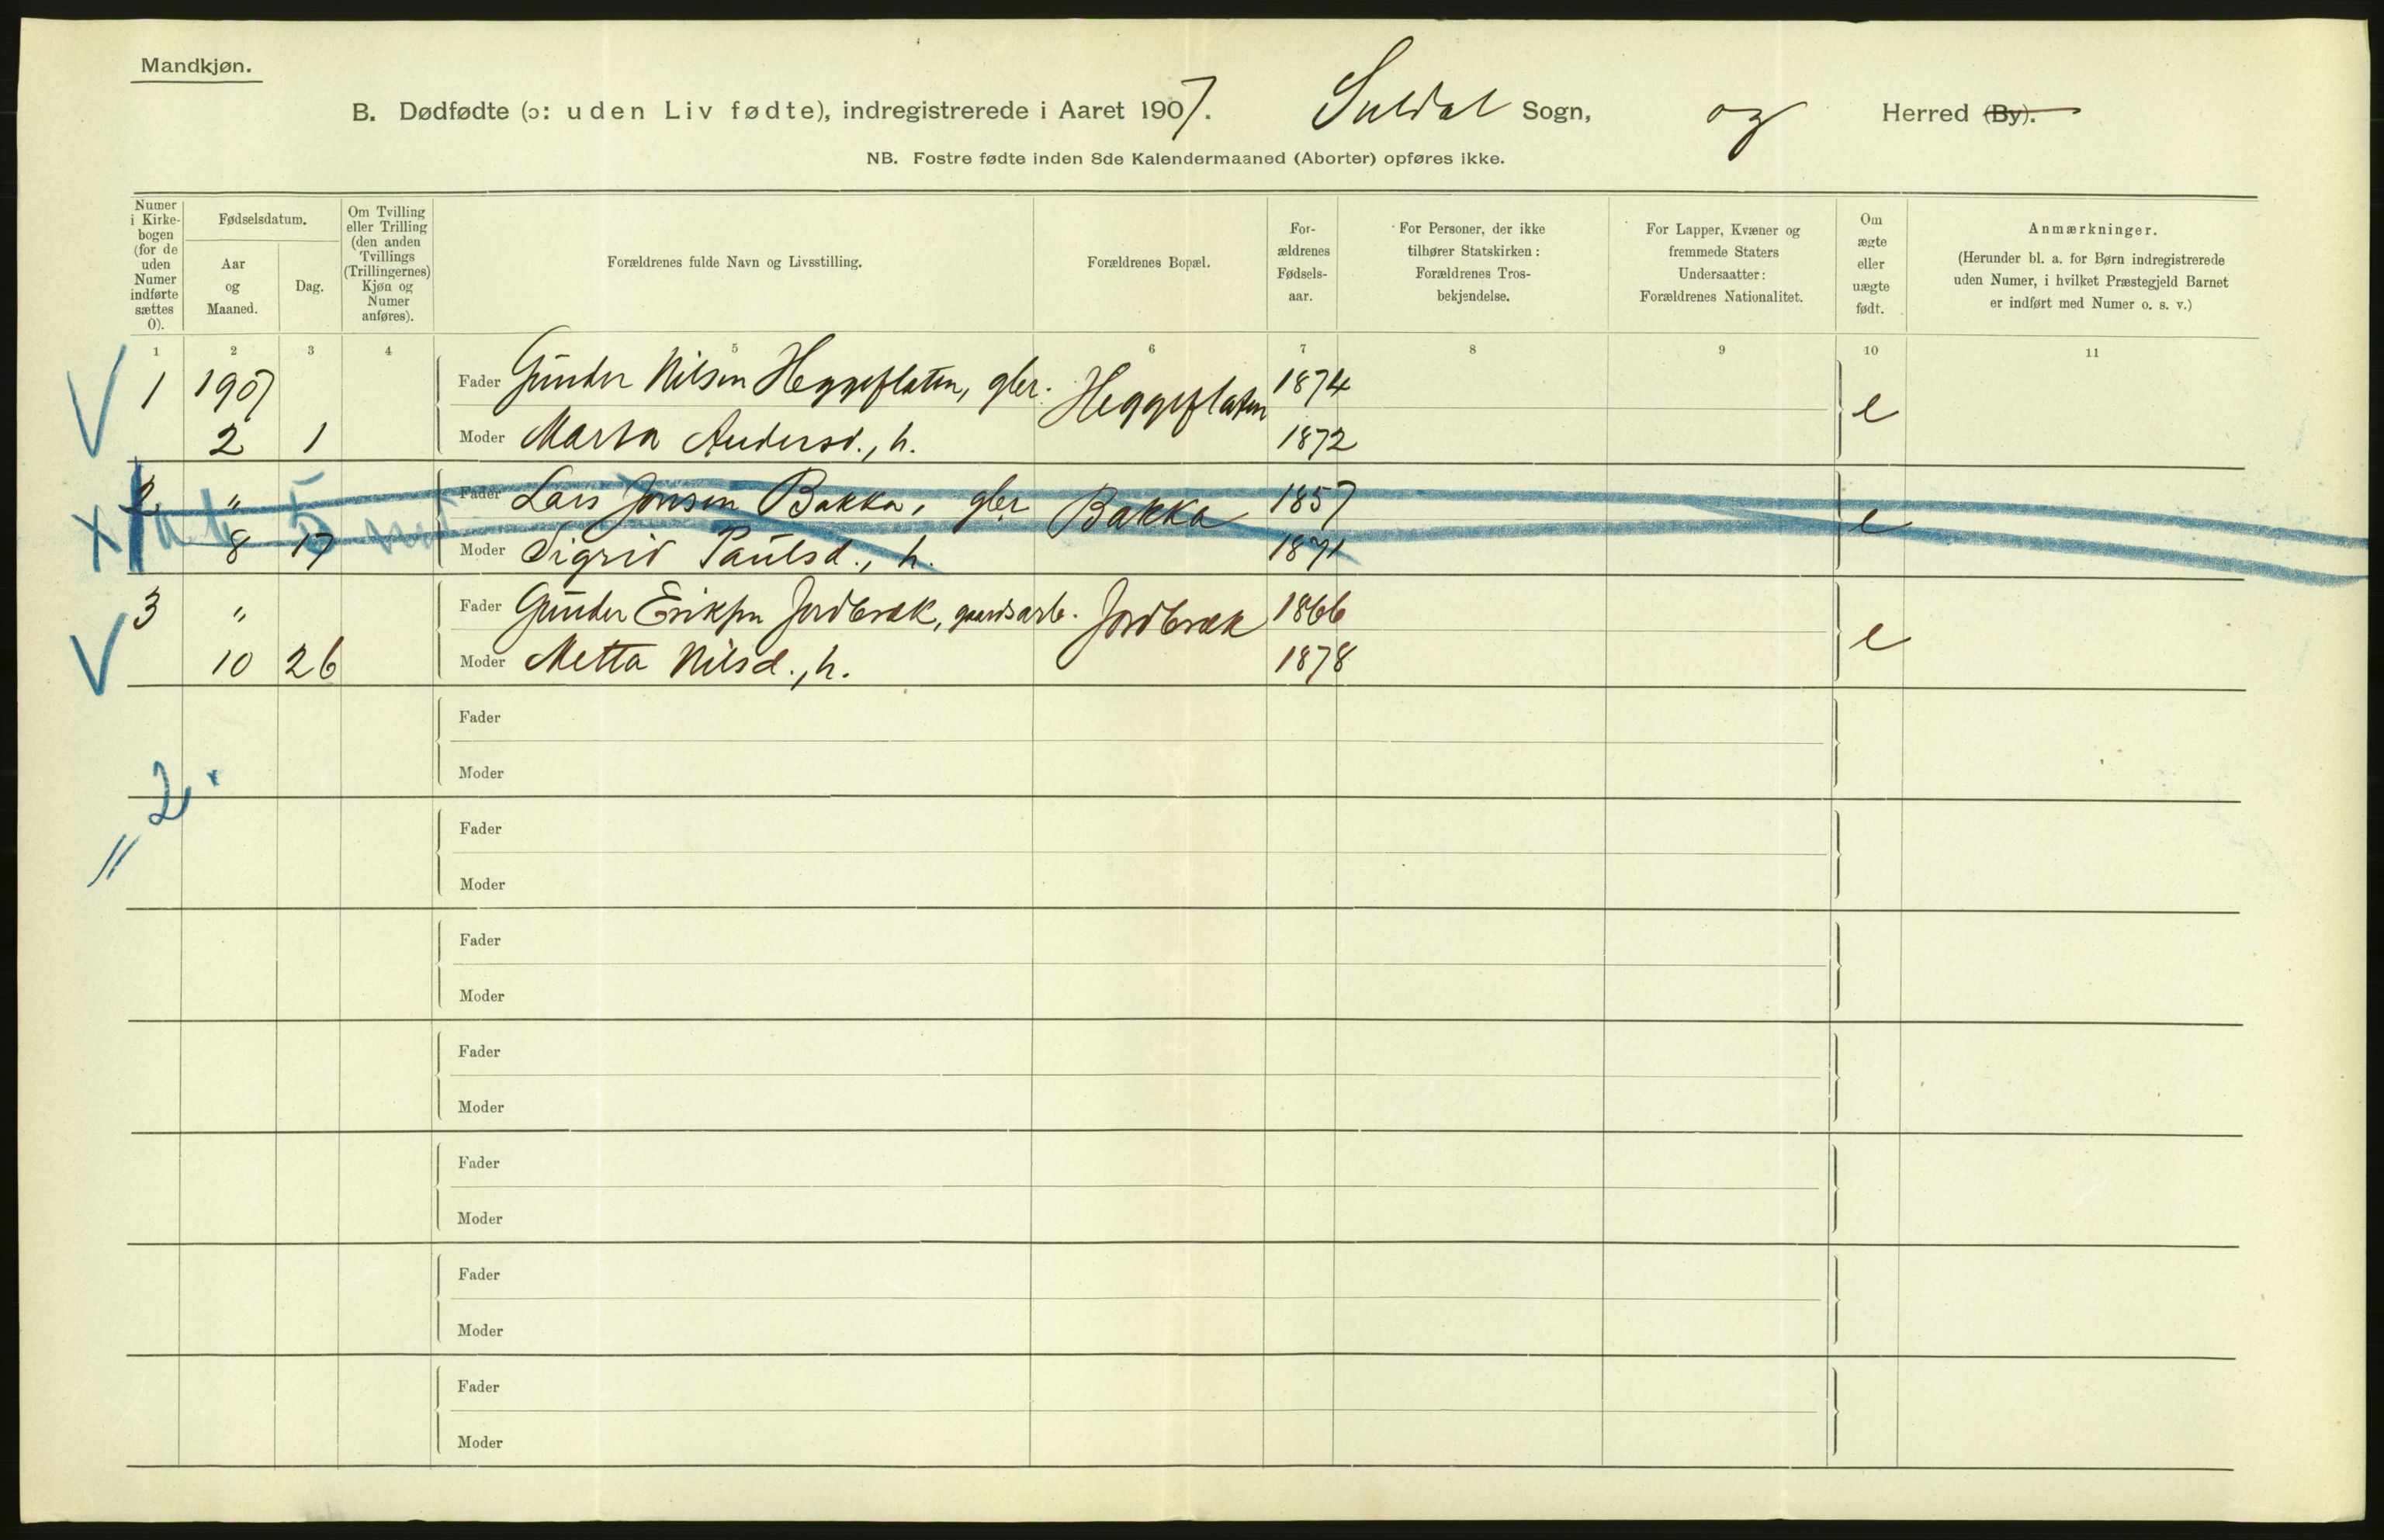 Mandkjøn.
B. Dødfødte (ɔ: uden Liv fødte), indregistrerede i Aaret 1907. Suldal Sogn, og Herred (By).
NB. Fostre fødte inden 8de Kalendermaaned (Aborter) opføres ikke.
Numer i Kirke-bogen (for de uden Numer indførte sættes 0).
Fødselsdatum.
Aar og Maaned.
Dag.
Om Tvilling eller Trilling (den anden Tvillings (Trillingernes) Kjøn og Numer anføres).
Forældrenes fulde Navn og Livsstilling.
Forældrenes Bopæl.
For-ældrenes Fødsels-aar.
For Personer, der ikke tilhører Statskirken: Forældrenes Tros-bekjendelse.
For Lapper, Kvæner og fremmede Staters Undersaatter: Forældrenes Nationalitet.
Om ægte eller uægte født.
Anmærkninger.
(Herunder bl. a. for Børn indregistrerede uden Numer, i hvilket Præstegjeld Barnet er indført med Numer o. s. v.)
1 2 3 4 5 6 7 8 9 10 11
V 1 1907 Fader Gunder Nilsen Heggeflaten, gbr. Heggeflaten 1874 e
2 1 Moder Marta Andersd., h. 1872
2 " Fader Lars Jonsen Bakka, gbr Bakka 1857 e
x 8 17 Moder Sigrid Paulsd., h. 1871
3 " Fader Gunder Eriksen Jordbræk, gaardsarb. Jordbræk 1866 e
V 10 26 Moder Metta Nilsd., h. 1878
Fader
Moder
2
//
Fader
Moder
Fader
Moder
Fader
Moder
Fader
Moder
Fader
Moder
Fader
Moder